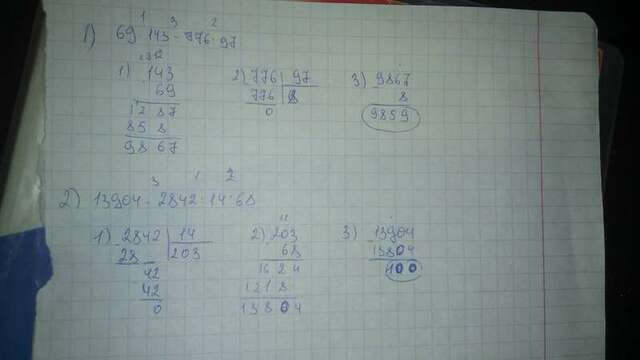 1 3 2
1) 69·143-776:97
1) 143 2) 776 | 97 3) 9867
69 776 8 8
1287 0 9859
858
9867
3 1 2
2) 13904-2842:14·68
1) 2842 | 14 2) 203 3) 13904
28 203 68 13804
42 1624 100
42 1218
0 13804